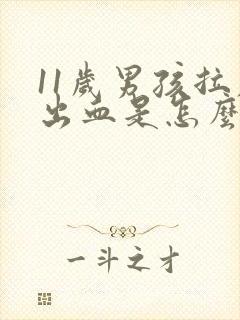 11歲男孩拉
出血是怎麼
一斗之才